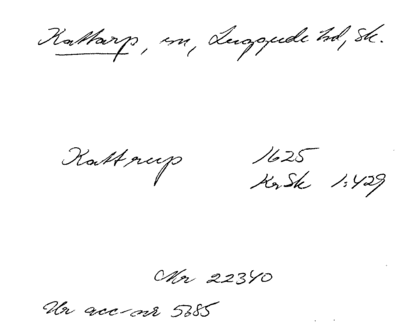 Kattarp, sn, Luggude hd, Sk.
Kattrup 1625
KrSk 1:429
Nr 22340
Ur acc-nr 5685